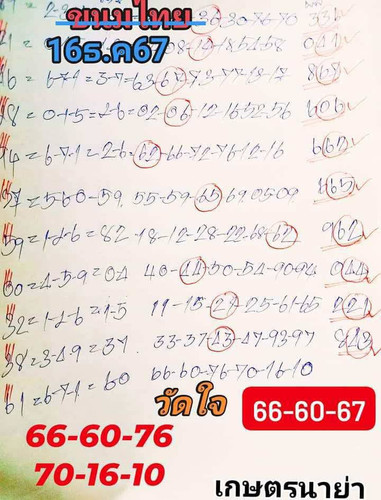 ขนมไทย
16ธ.ค67
30-70-66 331
18-54-58 041
6-7-1=3-7=63-67-73-77-13-17 867
0-1-5=2-6=02-06-12-16 52-56 606
6-7-1=2-6=62-66-72-76 12-16 662
=5-6-0=59 55-59-65 69 05 09 865
59=1-2-6=82 18-12-28-22 68-62 962
00=4-5-9=04 40-44-50-54-90-94 044
32=1-2-6=1-5 11-15-21-25-61-65 221
38=3-4-9=37 33-37-43-47-93-97 843
61=6-7-1=60 66-60-76-70-16-10
วัดใจ
66-60-67
66-60-76
70-16-10
เกษตรนาย่า